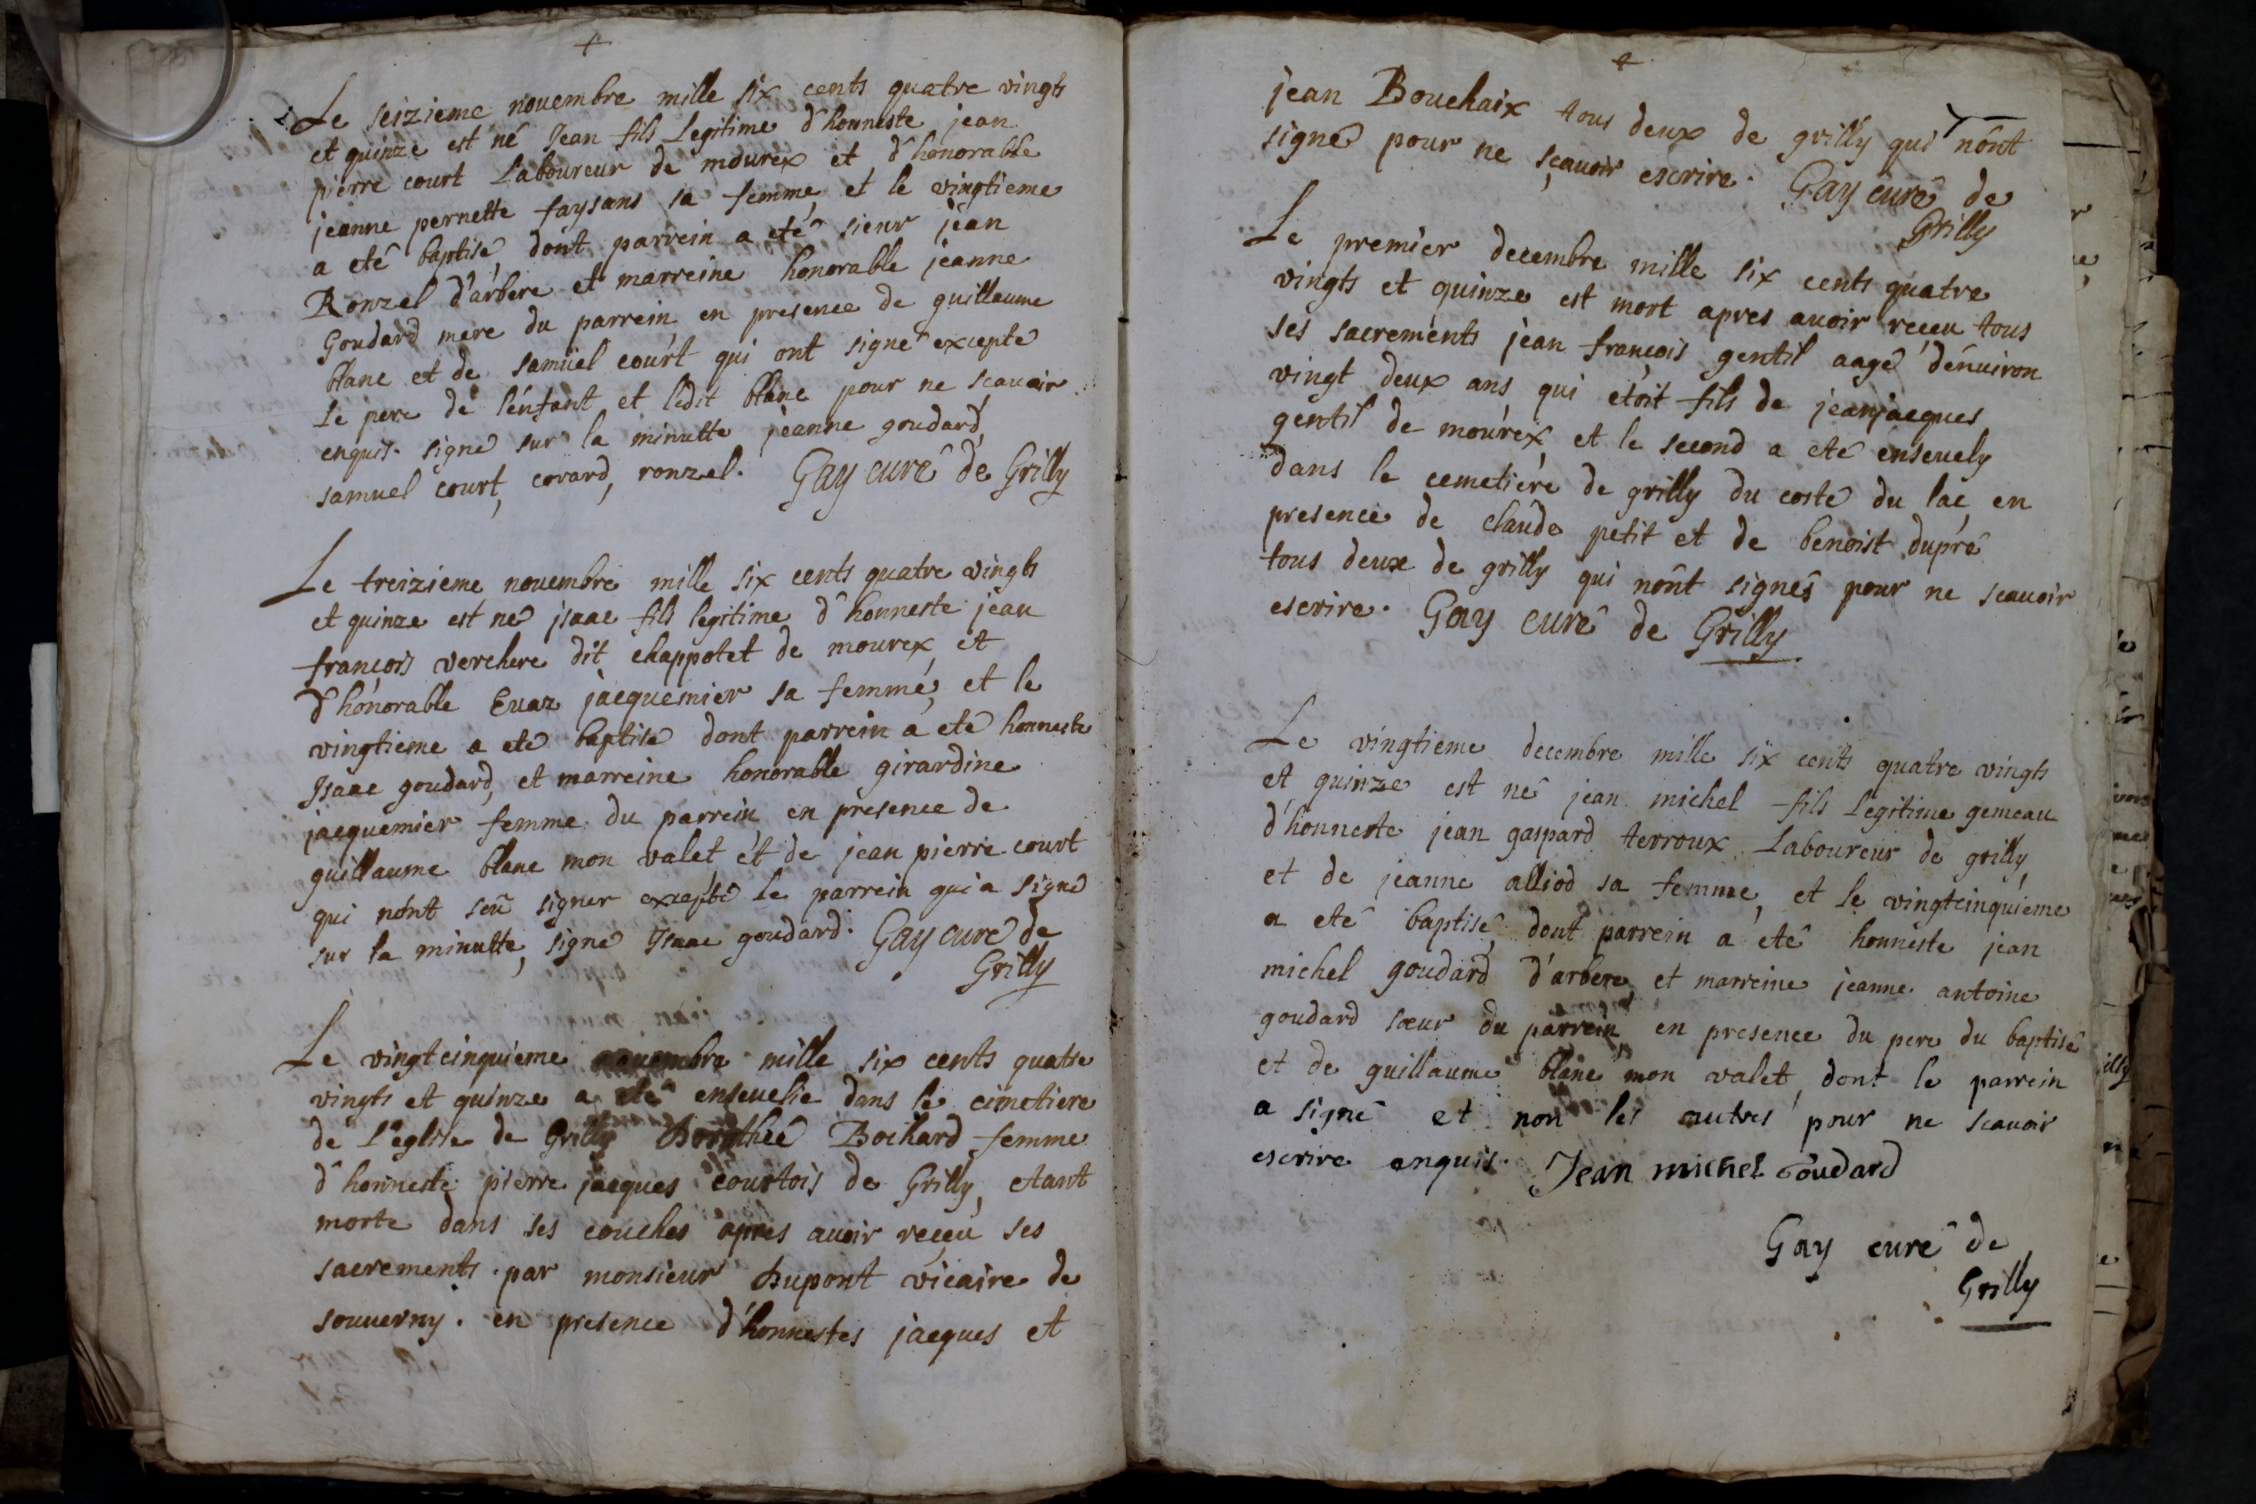 Le seizieme nouembre mille six cents quatre vingts
et quinze est né Jean fils Legitime d'honneste jean
pierre court Laboureur de mourex et d'honorable
jeanne pernette faysans sa femme, et le vingtieme
a eté baptisé, dont parrein a eté sieur jean
Ronzel d'arbere et marreine honorable jeanne
Goudard mere du parrein en presence de guillaume
blanc et de samüel court qui ont signé excepté
le pere de l'enfant et ledit blanc pour ne scauoir
enquis. signé sur la minutte jeanne goudard,
samuel court, covard, ronzel. Gay curé de Grilly
Le treizieme nouembre mille six cents quatre vingts
et quinze est né jsaac fils legitime d'honneste jean
françois verchere dit chappotet de mourex, et
d'honorable Euaz jacquemier sa femme, et le
vingtieme a eté baptisé dont parrein a eté honneste
Jsaac goudard, et marreine honorable girardine
jacquemier femme du parrein en presence de
guillaume blanc mon valet et de jean pierre court
qui n'ont seû signer excepté le parrein qui a signé
sur la minutte, signé Jsaac goudard. Gay curé de
Grilly
Le vingtcinquieme nouembre mille six cents quatre
vingts et quinze a eté enseuelie dans le cimetiere
de l'eglise de Grilly Dorothée Bochard femme
d'honneste pierre jacques courtois de Grilly, etant
morte dans ses couches apres auoir reçeu ses
sacrements par monsieur Dupont vicaire de
souuerny. en presence d'honnestes jacques et
jean Bouchaix tous deux de grilly qui n'ont
signé pour ne sçauoir escrire. Gay curé de
Grilly
Le premier decembre mille six cents quatre
vingts et quinze est mort apres auoir reçeu tous
ses sacrements jean françois gentil aagé d'enuiron
vingt deux ans qui etoit fils de jeanjacques
gentil de mourex et le second a eté enseuely
dans le cemetiere de grilly du costé du lac, en
presence de claude petit et de benoist dupré
tous deux de grilly qui n'ont signés pour ne scauoir
escrire. Gay curé de Grilly
Le vingtieme decembre mille six cents quatre vingts
et quinze est né jean michel fils legitime gemeau
d'honneste jean gaspard terroux Laboureur de grilly,
et de jeanne alliod sa femme, et le vingtcinquieme
a eté baptisé, dont parrein a eté honneste jean
michel goudard d'arbere, et marreine jeanne antoine
goudard sœur du parrein, en presence du pere du baptisé
et de guillaume blanc mon valet, dont le parrein
a signé et non les autres pour ne scauoir
escrire enquis. Jean michel Goudard
Gay curé de
Grilly